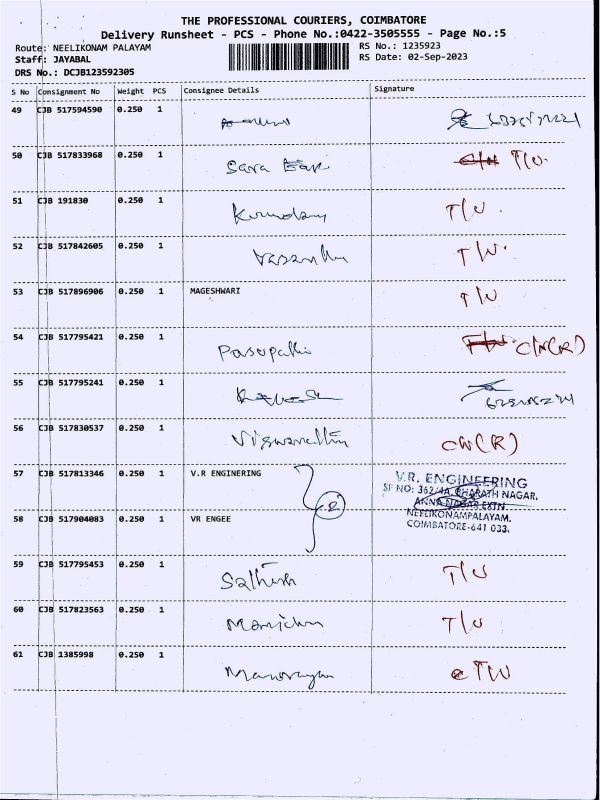 THE PROFESSIONAL COURIERS, COIMBATORE
Delivery Runsheet - PCS - Phone No.:0422-3505555 - Page No.:5
Route: NEELIKONAM PALAYAM RS No.: 1235923
Staff: JAYABAL RS Date: 02-Sep-2023
DRS No.: DCJB123592305
S No Consignment No Weight PCS Consignee Details Signature
49 CJB 517594590 0.250 1
50 CJB 517833968 0.250 1 Sara T/W
51 CJB 191830 0.250 1 T/W
52 CJB 517842605 0.250 1 Vasantha T/W
53 CJB 517896906 0.250 1 MAGESHWARI T/W
54 CJB 517795421 0.250 1 Pasupathi C/N(R)
55 CJB 517795241 0.250 1
56 CJB 517830537 0.250 1 Viswanathan CN(R)
57 CJB 517813346 0.250 1 V.R ENGINERING V.R. ENGINEERING
SF NO: 362/4A, BHARATH NAGAR,
ANNA NAGAR EXTN
NEELIKONAMPALAYAM,
COIMBATORE-641 033.
58 CJB 517904083 0.250 1 VR ENGEE 2
59 CJB 517795453 0.250 1 Sathish T/W
60 CJB 517823563 0.250 1 T/W
61 CJB 1385998 0.250 1 T/W